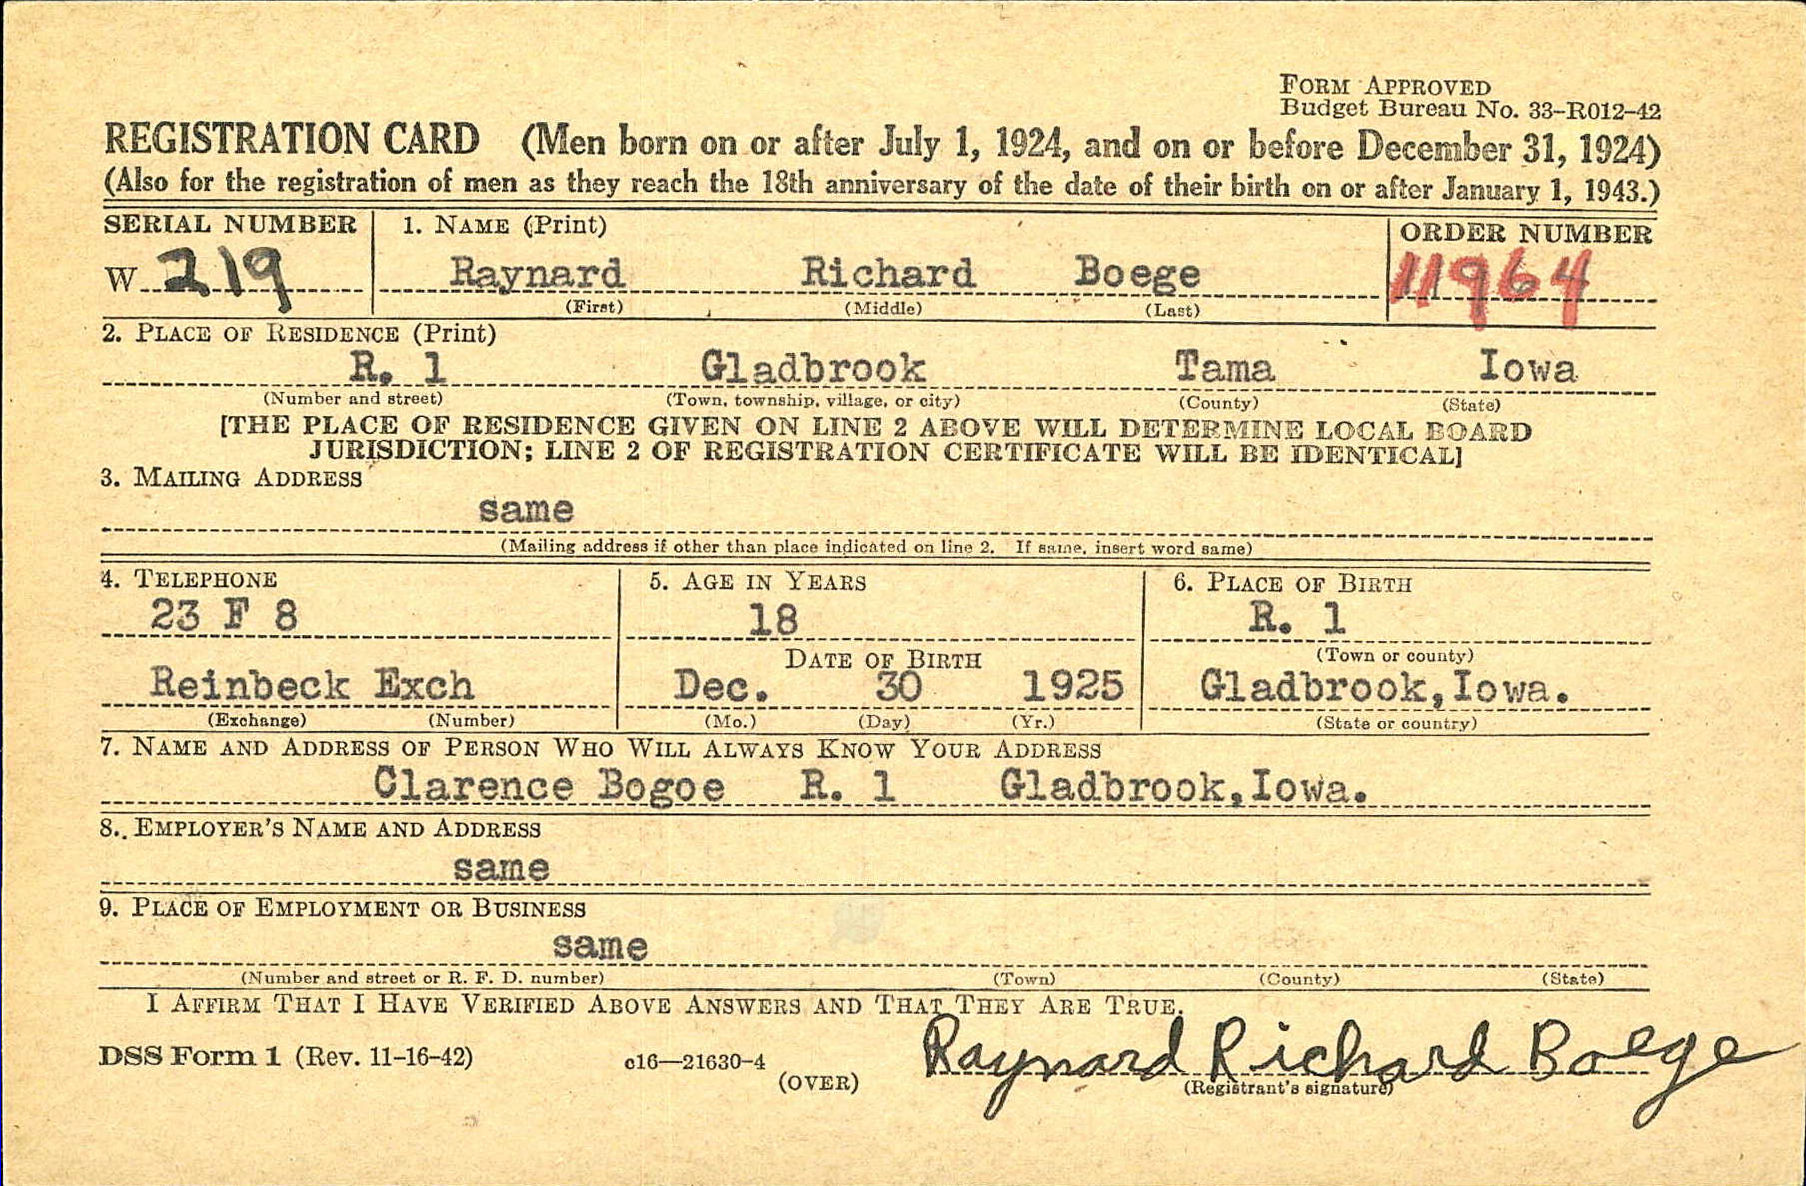 FORM APPROVED
Budget Bureau No. 33-R012-42
REGISTRATION CARD (Men born on or after July 1, 1924, and on or before December 31, 1924)
(Also for the registration of men as they reach the 18th anniversary of the date of their birth on or after January 1, 1943.)
SERIAL NUMBER 1. NAME (Print) ORDER NUMBER
W 219 Raynard Richard Boege 11964
(First) (Middle) (Last)
2. PLACE OF RESIDENCE (Print)
R. 1 Gladbrook Tama Iowa
(Number and street) (Town, township, village, or city) (County) (State)
[THE PLACE OF RESIDENCE GIVEN ON LINE 2 ABOVE WILL DETERMINE LOCAL BOARD
JURISDICTION; LINE 2 OF REGISTRATION CERTIFICATE WILL BE IDENTICAL]
3. MAILING ADDRESS
same
(Mailing address if other than place indicated on line 2. If same, insert word same)
4. TELEPHONE 5. AGE IN YEARS 6. PLACE OF BIRTH
23 F 8 18 R. 1
DATE OF BIRTH (Town or county)
Reinbeck Exch Dec. 30 1925 Gladbrook,Iowa.
(Exchange) (Number) (Mo.) (Day) (Yr.) (State or country)
7. NAME AND ADDRESS OF PERSON WHO WILL ALWAYS KNOW YOUR ADDRESS
Clarence Bogoe R. 1 Gladbrook,Iowa.
8. EMPLOYER'S NAME AND ADDRESS
same
9. PLACE OF EMPLOYMENT OR BUSINESS
same
(Number and street or R. F. D. number) (Town) (County) (State)
I AFFIRM THAT I HAVE VERIFIED ABOVE ANSWERS AND THAT THEY ARE TRUE.
Raynard Richard Boege
DSS Form 1 (Rev. 11-16-42) c16—21630-4
(OVER) (Registrant's signature)